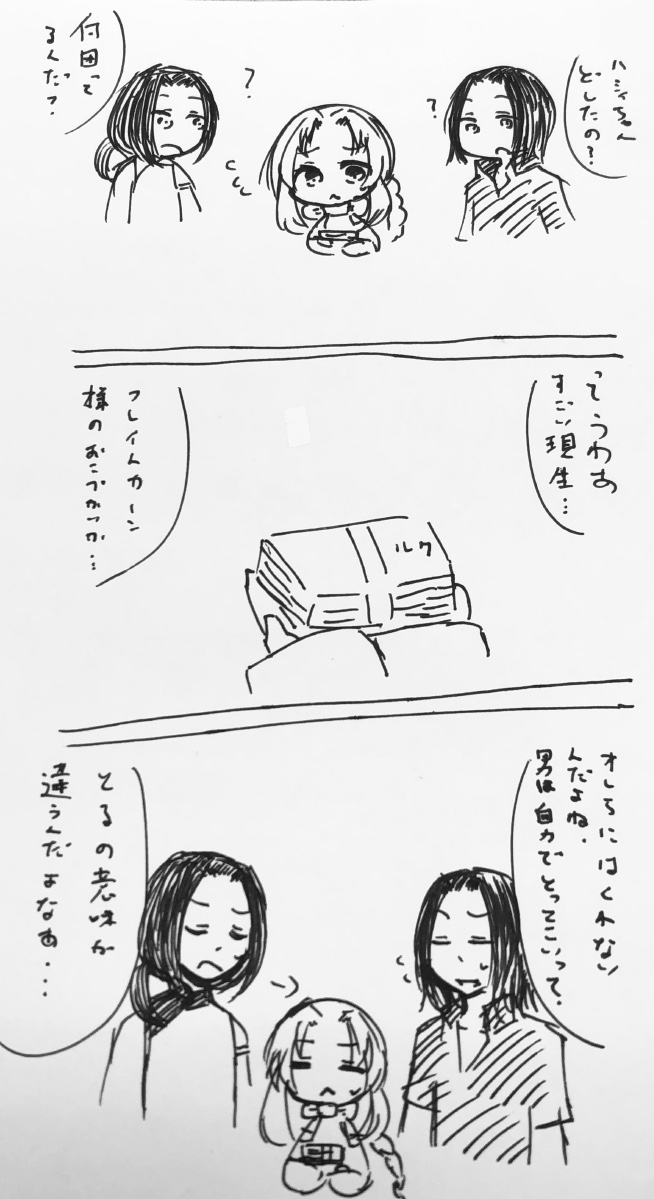 ハシィちゃん
どしたの?
?
?
何困って
るんだ?
ってうわあ
すごい現生…
ルク
フレイムカーン
様のおこづかいか…
オレらにはくれない
んだよね.
男は自力でとってこいって.
とるの意味が
違うんだよなあ...